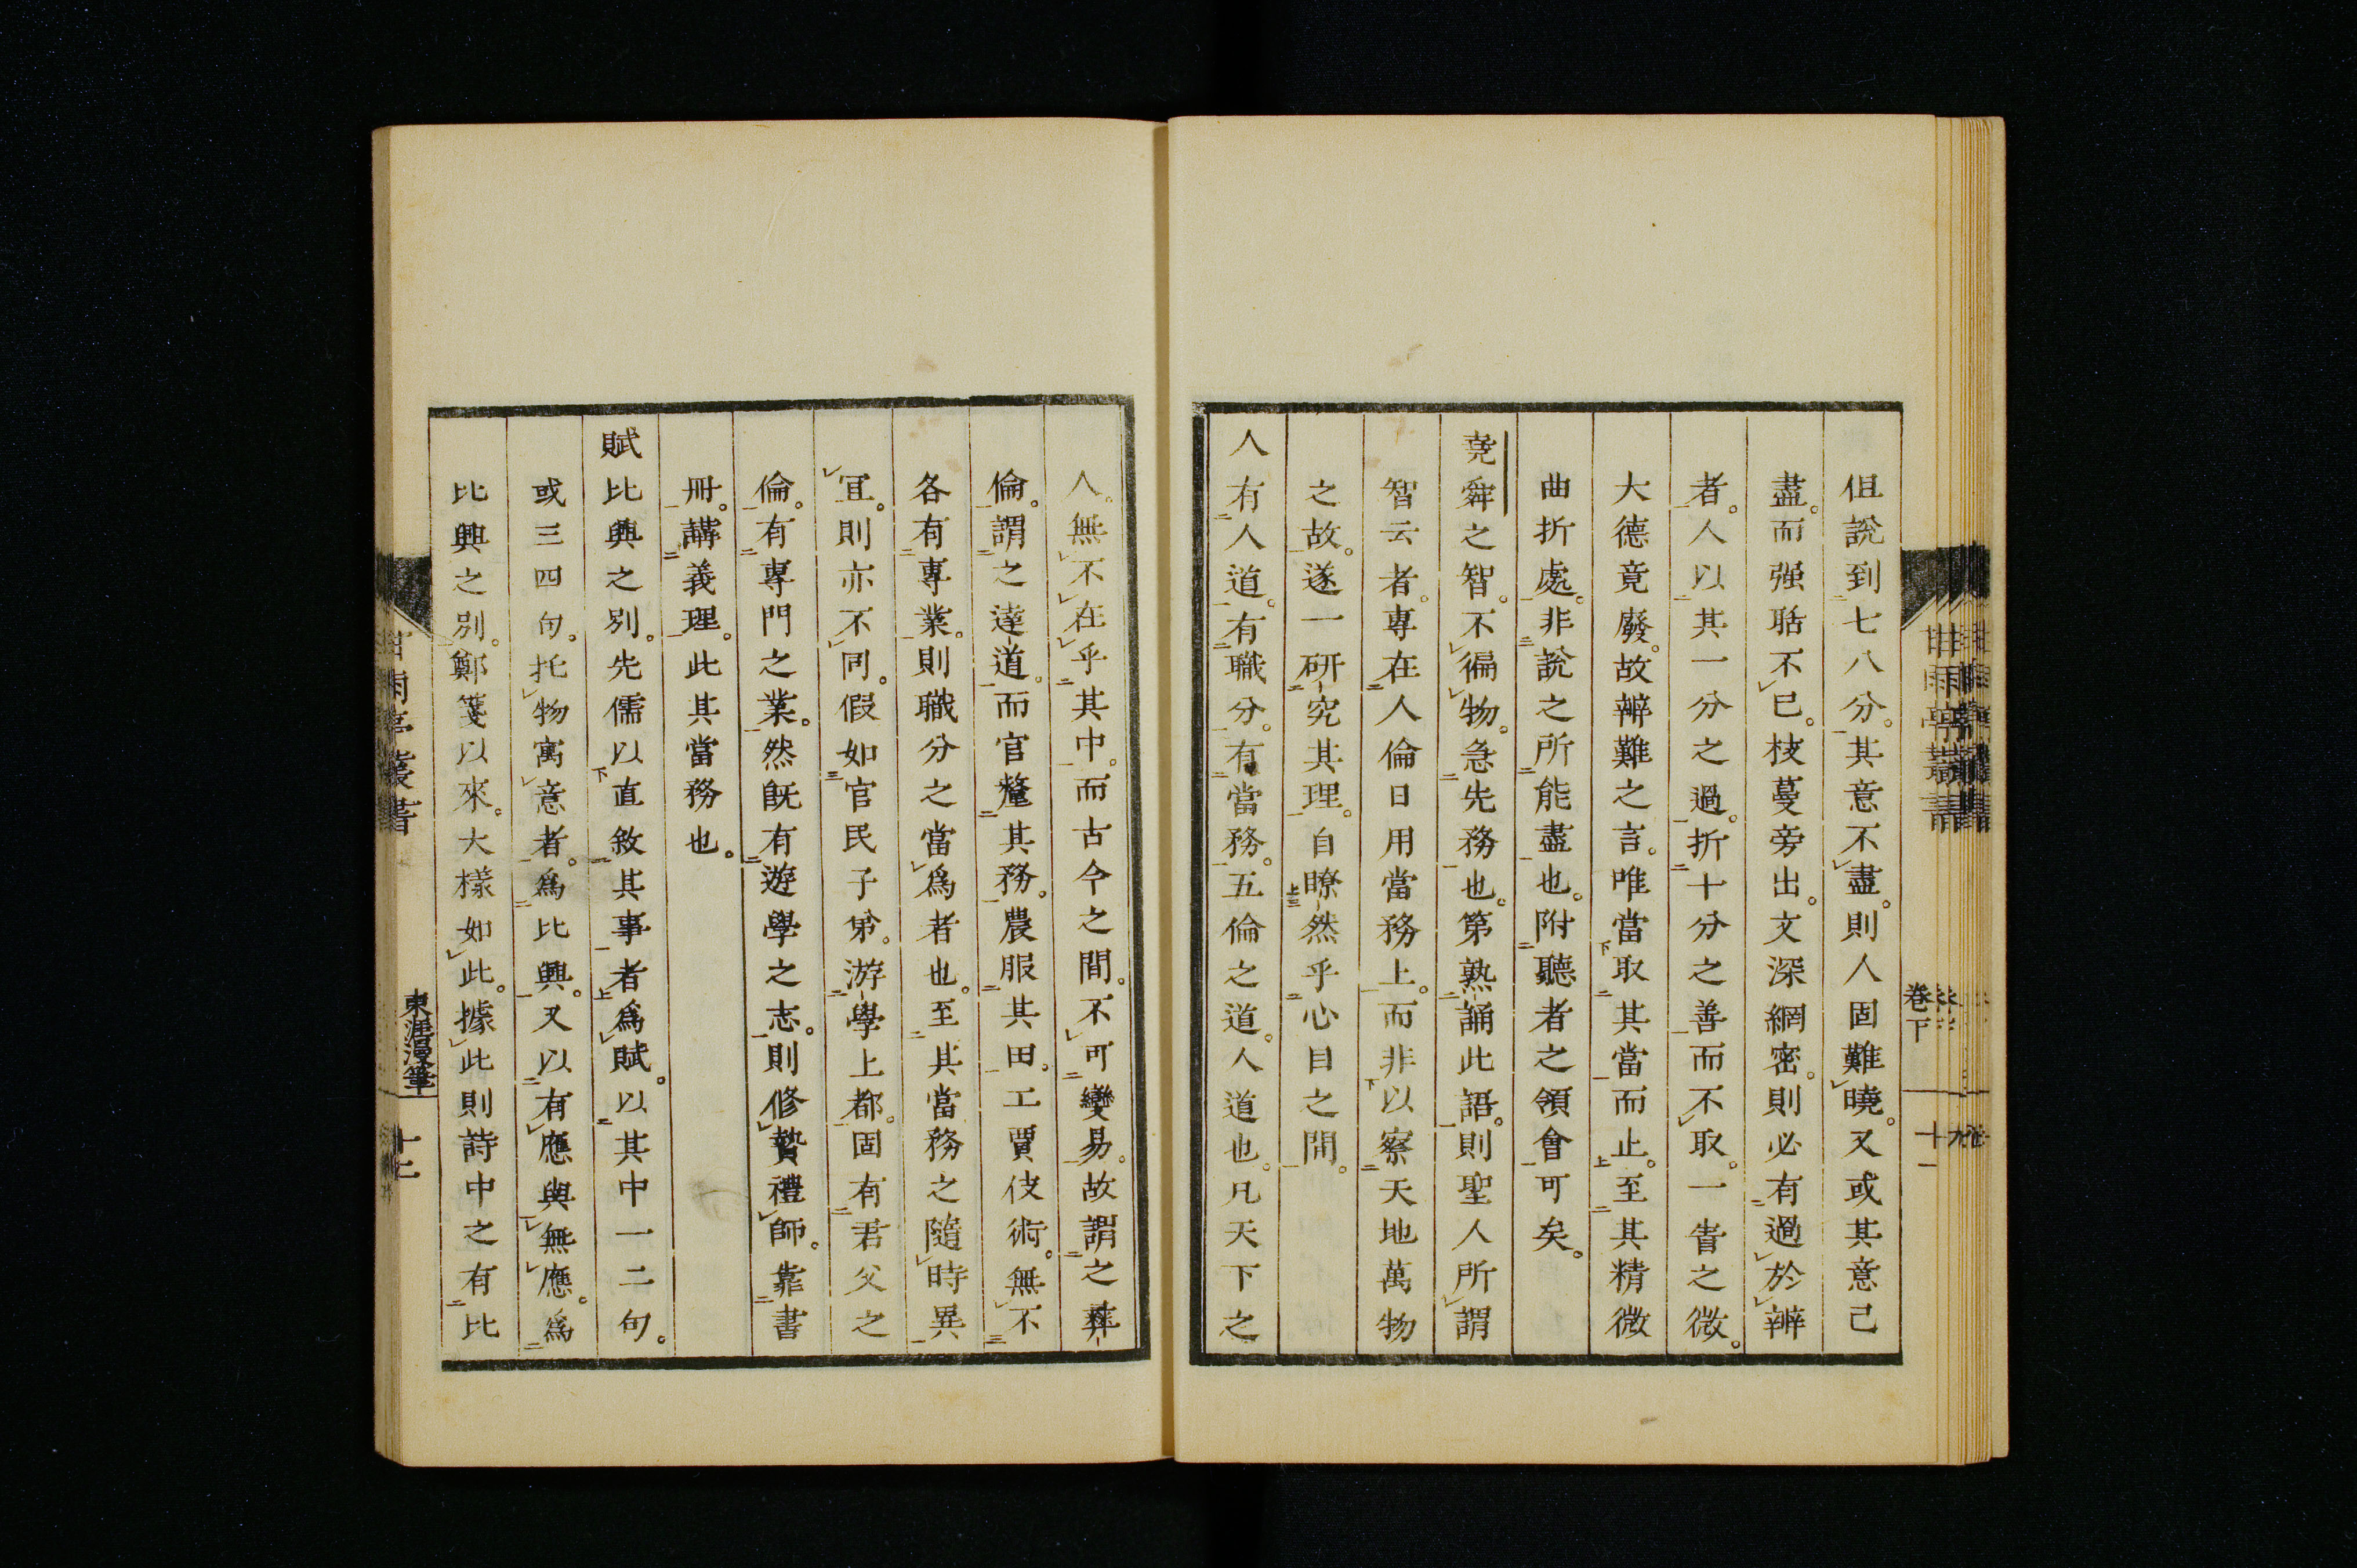 但說到七八分。其意不盡。則人固難曉。又或其意已
盡。而强聒不已。枝蔓旁出。文深網密。則必有過於辨
者。人以其一分之過。折十分之善而不取。一眚之微。
大德竟廢。故辨難之言。唯當取其當而止。至其精微
曲折處。非說之所能盡也。附聽者之領會可矣。
堯舜之智。不徧物。急先務也。第熟誦此語。則聖人所謂
智云者。專在人倫日用當務上。而非以察天地萬物
之故。遂一研究其理。自瞭然乎心目之間。
人有人道。有職分。有當務。五倫之道。人道也。凡天下之
卷下
十一
人。無不在乎其中。而古今之間。不可變易。故謂之彝
倫。謂之達道。而官釐其務。農服其田。工賈伎術。無不
各有專業。則職分之當爲者也。至其當務之隨時異
宜。則亦不同。假如官民子弟。游學上都。固有君父之
倫。有專門之業。然旣有遊學之志。則修贄禮師。靠書
冊。講義理。此其當務也。
賦比興之別。先儒以直敘其事者爲賦。以其中一二句。
或三四句。托物寓意者。爲比興。又以有應與無應。爲
比興之別。鄭箋以來。大樣如此。據此則詩中之有比
甘雨亭叢書
東涯漫筆
十二